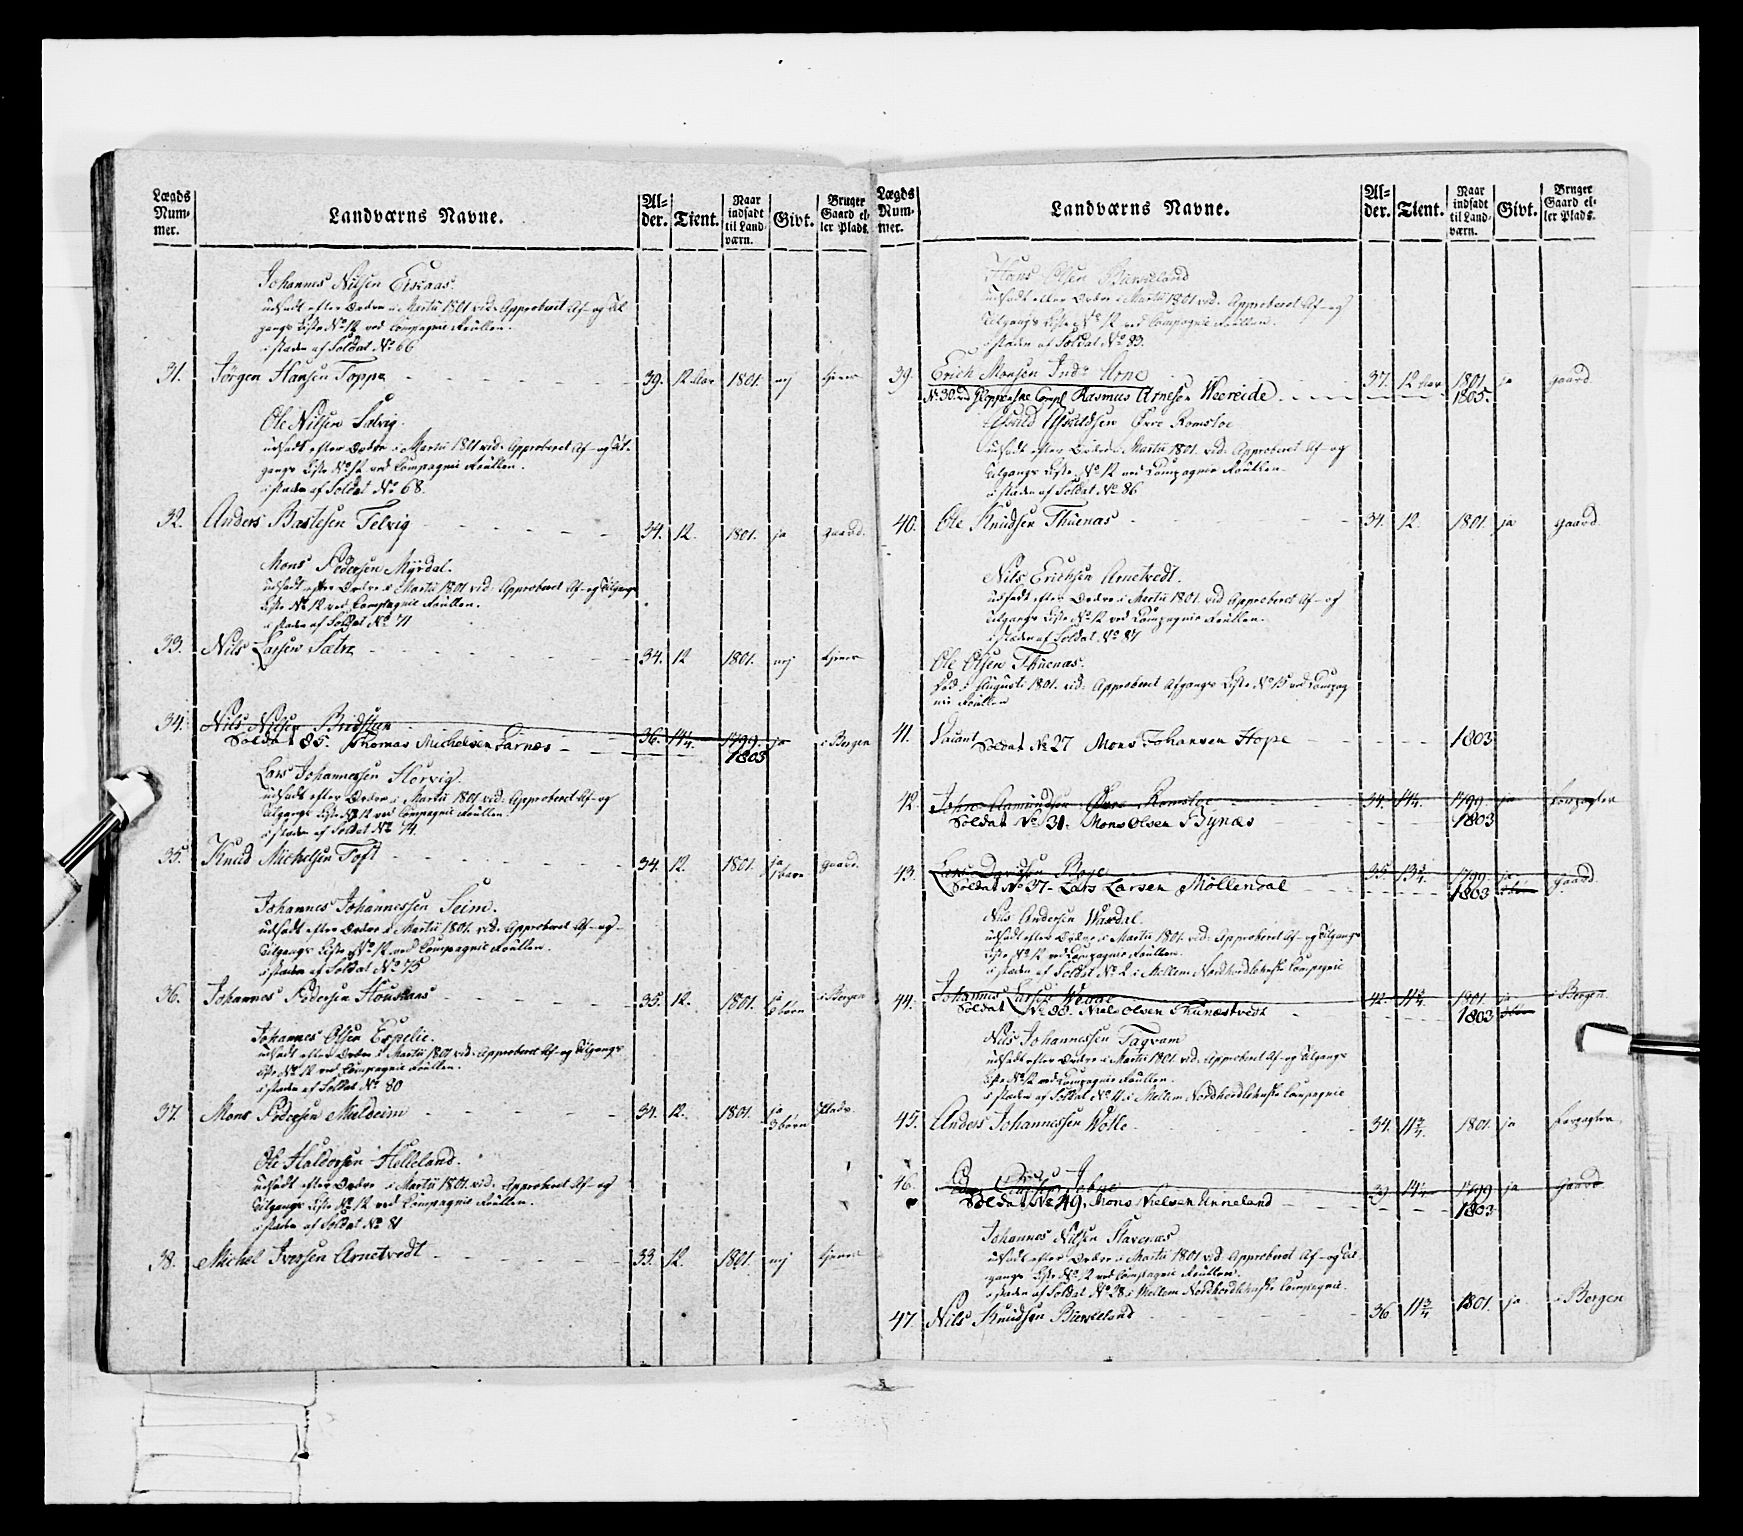 Lægds Num- mer. Landværns Navne. Al- der. Tient. Naar indsadt til Land- værn. Givt. Bruger Gaard el- ler Plads.
Johannes Nilsen
udsadt efter Ordre i Martii 1801 vid. Approberet Af- og Til
gangs Liste No 12 ved Compagnie Roullen.
i stæden af Soldat No 66
31. Jørgen Hansen Toppe 39. 12 Aar 1801. nej tjener
Ole Nilsen Salvig.
udsadt efter Ordre i Martii 1801 vid. Approberet Af- og Til-
gangs Liste No 12 ved Compagnie Roullen.
i stæden af Soldat No 68.
32. Anders Bastesen Telvig 34. 12. 1801. ja gaard.
Mons Pedersen Myrdal.
udsadt efter Ordre i Martii 1801 vid. Approberet Af- og Tilgangs
Liste No 12 ved Compagnie Roullen.
i stæden af Soldat No 71
33. Nils Larsen Sætre 34. 12 1801. nej tjener
34. Nils Nilsen 36. 14¼. 1799. ja i Bergen
Soldat 85. Thomas Michelsen Farnæs 1803
Lars Johannessen Horvig.
udsadt efter Ordre i Martii 1801 vid. Approberet Af- og
Tilgangs Liste No 12 ved Compagnie Roullen.
i stæden af Soldat No 74.
35. Knud Michelsen Toft 34. 12. 1801. ja 1 barn gaard.
Johannes Johannessen Seim.
udsadt efter Ordre i Martii 1801. vid. Approberet Af- og
Tilgangs Liste No 12 ved Compagnie Roullen.
i stæden af Soldat No 75
36. Johannes Pedersen Housaas 35. 12. 1801. ja børn i Bergen
Johannes Olsen Espelie.
udsadt efter Ordre i Martii 1801 vid. Approberet Af- og Tilgangs
Liste No 12 ved Compagnie Roullen.
i stæden af Soldat No 80
37. Mons Pedersen Mieldeim 34. 12. 1801. ja 3 børn Plads
Ole Haldorsen Helleland.
udsadt efter Ordre i Martii 1801. vid. Approberet Af- og
Tilgangs Liste No 12 ved Compagnie Roullen.
i stæden af Soldat No 81
38. Michel Iversen Arnetvedt 33. 12. 1801. nej tjener
Lægds Num- mer. Landværns Navne. Al- der. Tient. Naar indsadt til Land- værn. Givt. Bruger Gaard el- ler Plads.
Hans Olsen Birkeland
udsadt efter Ordre i Martii 1801 vid. Approberet Af- og
Tilgangs Liste No 12 ved Compagnie Roullen.
i stæden af Soldat No 83.
39. Erich Monsen Indr Arne 37. 12 Aar 1801. ja gaard
No 30 Gloppenske Comp Rasmus Arnesen Weereide 1805.
Øvre Romsloe
udsadt efter Ordre i Martii 1801. vid. Approberet Af- og
Tilgangs Liste No 12 ved Compagnie Roullen.
i stæden af Soldat No 86
40. Ole Knudsen Thuenæs 34. 12. 1801 ja gaard
Nils Erichsen Arnetvedt.
udsadt efter Ordre i Martii 1801. vid Approberet Af- og
Tilgangs Liste No 12 ved Compagnie Roullen.
i stæden af Soldat No 87
Ole Olsen Thuenæs.
død i Augusti 1801. vid. Approberet Afgangs Liste No 15 ved Compag
nie Roullen
41. Vacant
Soldat No 27 Mons Johansen Hope 1803
42. John Aamundsen Øvre Romsloe 34. 14¼. 1799. ja forpagter
Soldat No 31. Mons Olsen Bynæs 1803
43. Lars Davidsen 35 1799. ja gaard
Soldat No 37. Lars Larsen Møllendal 1803
Nils Andersen Wardal.
udsadt efter Ordre i Martii 1801. vid. Approberet Af- og Tilgangs
Liste No 12 ved Compagnie Roullen.
i stæden af Soldat No 2 i Mellem Nordhordlehnske Compagnie
44. Johannes Larsen 42. 11¾. 1801. ja i Bergen
Soldat Niels Olsen Thunæstvedt 1803
Nils Johannessen Tagvam
udsadt efter Ordre i Martii 1801. vid. Approberet Af- og Tilgangs
Liste No 12 ved Compagnie Roullen.
i stæden af Soldat No 11 i Mellem Nordhordlehnske Compagnie
45. Anders Johannessen Wolle 34. 11¾. 1801. ja forpagter
46. 39 14¼ 1799 ja gaard
Soldat No 49. Mons Nielsen Unneland 1803
Johannes Nilsen Stavenæs
udsadt efter Ordre i Martii 1801 vid. Approberet Af- og Til
gangs Liste No 12 ved Compagnie Roullen.
i stæden af Soldat No 28 i Mellem Nordhordlehnske Compagnie.
47. Nils Knudsen Birkeland 36 11¾ 1801. ja i Bergen